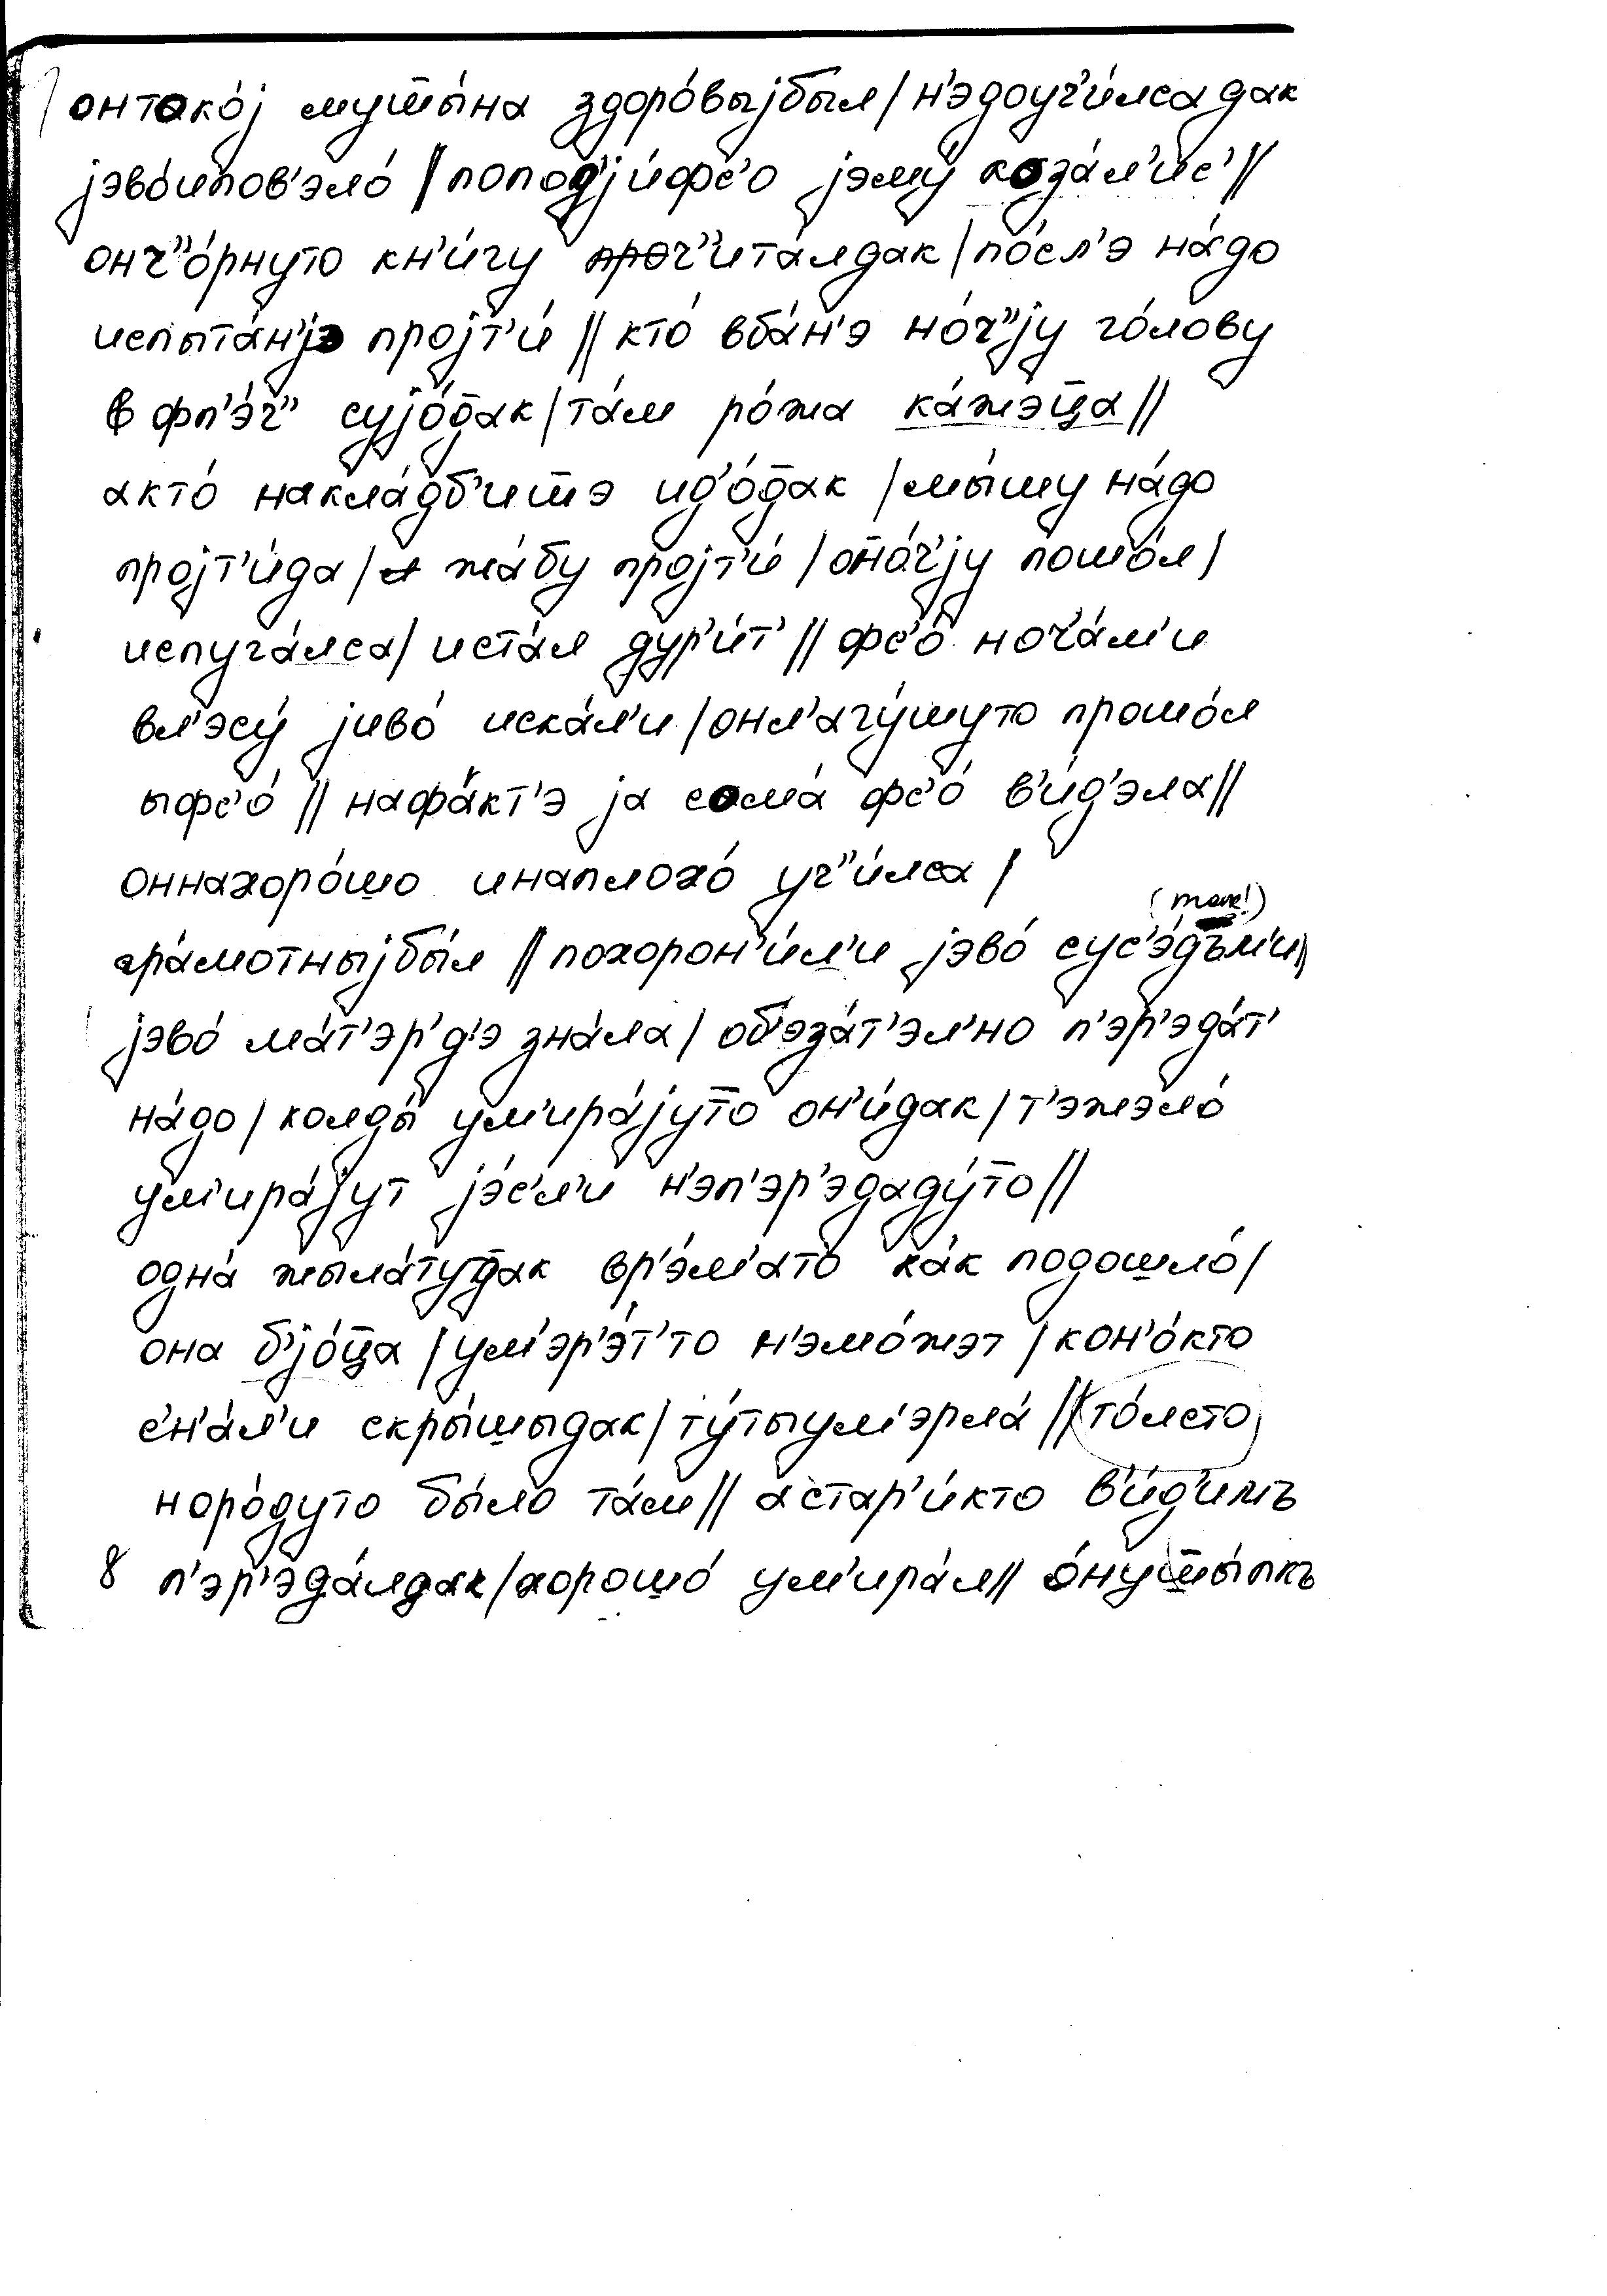 онтоко́j муш̅ы́на здоро́выjбыл / н'эдоуч'и́лсадак
jэво́ипов'эло́ / попод'jи́фс'о jэму́ коза́л'ис' //
онч"о́рнуто кн'и́гу проч"ита́лдак / по́сл'э на́до
испыта́н'jэ проjт'и́ // кто́ вба́н'э но́ч"jу го́лову
в фп'э́ч" суjо́д̅ак / та́м ро́жа ка́жэц̅а //
акто́ накла́дб'иш̅э ид'о́д̅ак / мы́шу на́до
проjт'и́да / и жа́бу проjт'и́ / он̅о́ч'jу пошо́л /
испуга́лса / иста́л дур'и́т' // фс'о́ ноч'а́м'и
вл'эсу́ jиво́ иска́л'и / онл'агу́шуто прошо́л
ыфс'о́ // нафа́кт'э jа сома́ фс'о́ в'и́д'эла //
оннахоро́шо инаплохо́ уч"и́лса /
гра́мотныjбы́л // похорон'и́л'и jэво́ сус'э́дъм'и //
(тоже!)
jэво́ ма́т'эр'д'э зна́ла / об'эза́т'эл'но п'эр'эда́т'
на́до / колды́ ум'ира́jут̅о он'и́дак / т'эжэло́
ум'ира́jут jэ́с'л'и н'эп'эр'эдаду́т̅о //
одна́ жыла́туд̅ак вр'э́м'ато ка́к подошло́ /
она б'jо́ц̅а / ум'эр'э́т'то н'эмо́жэт / кон'о́кто
с'н'а́л'и скры́шыдак / ту́тыум'эрла́ // то́лсто
норо́дуто бы́ло та́м // астар'и́кто в'и́д'имъ
8 п'эр'эда́лдак / хорошо́ ум'ира́л // о́нуш̅ы́пкъ